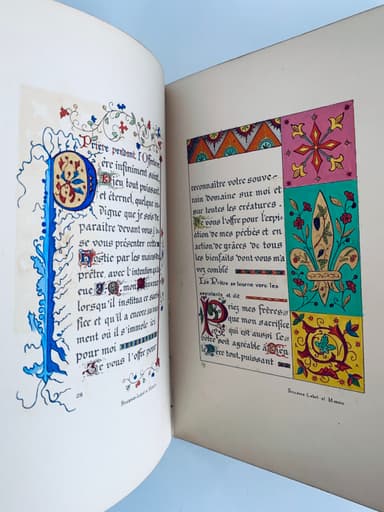 Prière pendant l'Offert
ère infiniment saint,
Dieu tout puissant
et éternel, quelque in
digne que je sois de
paraître devant vous j'o
se vous présenter cette
hostie par les mains
prêtre, avec l'intention qu'a
que
lorsqu'il institua ce sacri
fice et qu'il a encore au mo
ment où il s'immole ici
pour moi
Je vous l'offre pour
reconnaître votre souve
rain domaine sur moi et
sur toutes les créatures.
Je vous l'offre pour l'expia
tion de mes péchés et en
action de grâces de tous
les bienfaits dont vous m'a
vez comblé
Le Prêtre se tourne vers les
assistants et dit
Priez mes frères
que mon sacrifice
qui est aussi le
vôtre soit agréable à Dieu
le Père tout puissant